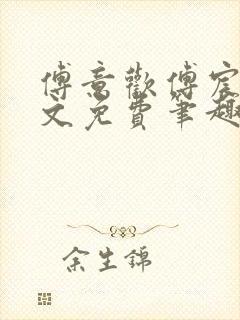 傅意歡傅宸
文免費笔趣
余生錦